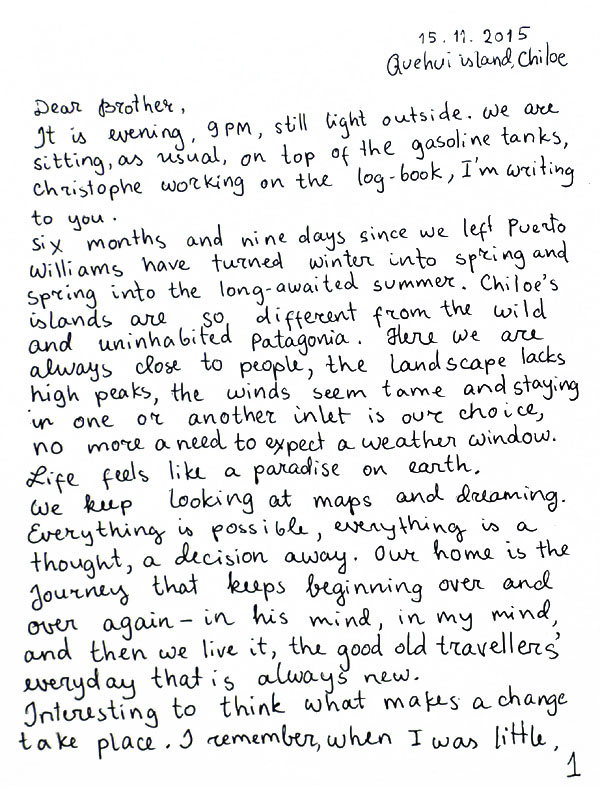 15.11.2015
Quehui island, Chiloe
Dear Brother,
It is evening, 9PM, still light outside. We are
sitting, as usual, on top of the gasoline tanks,
Christophe working on the log-book, I'm writing
to you.
Six months and nine days since we left Puerto
Williams have turned winter into spring and
spring into the long-awaited summer. Chiloe's
islands are so different from the wild
and uninhabited Patagonia. Here we are
always close to people, the landscape lacks
high peaks, the winds seem tame and staying
in one or another inlet is our choice,
no more a need to expect a weather window.
Life feels like a paradise on earth.
We keep looking at maps and dreaming.
Everything is possible, everything is a
thought, a decision away. Our home is the
Journey that keeps beginning over and
over again – in his mind, in my mind,
and then we live it, the good old travellers'
everyday that is always new.
Interesting to think what makes a change
take place. I remember, when I was little,
1